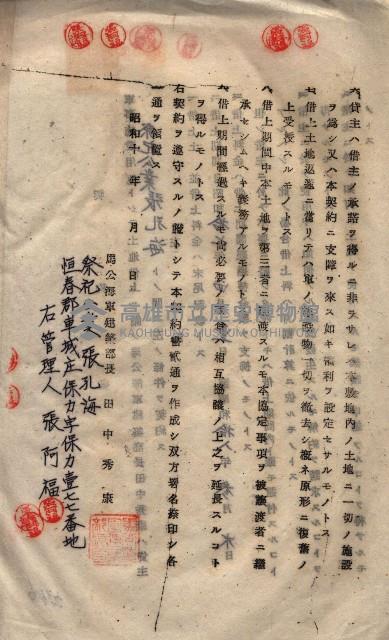 六貸主ハ借主ノ承諾ヲ得ルニ非ラサレハ本敷地内ノ土地ニ一切ノ施設
ヲ為シ又ハ本契約ニ支障ヲ来ス如キ権利ヲ設定セサルモノトス
七借上土地返還ニ當リテハ軍ノ施設物ヲ一切ヲ徹去シ概ネ原形ニ復舊ノ
上受授スルモノトス
八借上期間中本土地ヲ第三者ニ譲渡スルモ本協定事項ヲ被譲渡者ニ繼
承セシムヘキ義務アルモノトス
九借上期間經過スルモ尚必要ノ場合ハ相互協議ノ上之ヲ延長スルコト
ヲ得ルモノトス
右契約ヲ遵守スルノ證トシテ本契約書貳通ヲ作成シ双方署名捺印シ各
一通ヲ領置ス
昭和十年 月 日
馬公海軍建築部長 田中秀康
祭祀公業 張孔海
恒春郡車城庄保力字保力壹七七番地
右管理人 張阿福
高雄市立歷史博物館
KAOHSIUNG MUSEUM OF HISTORY